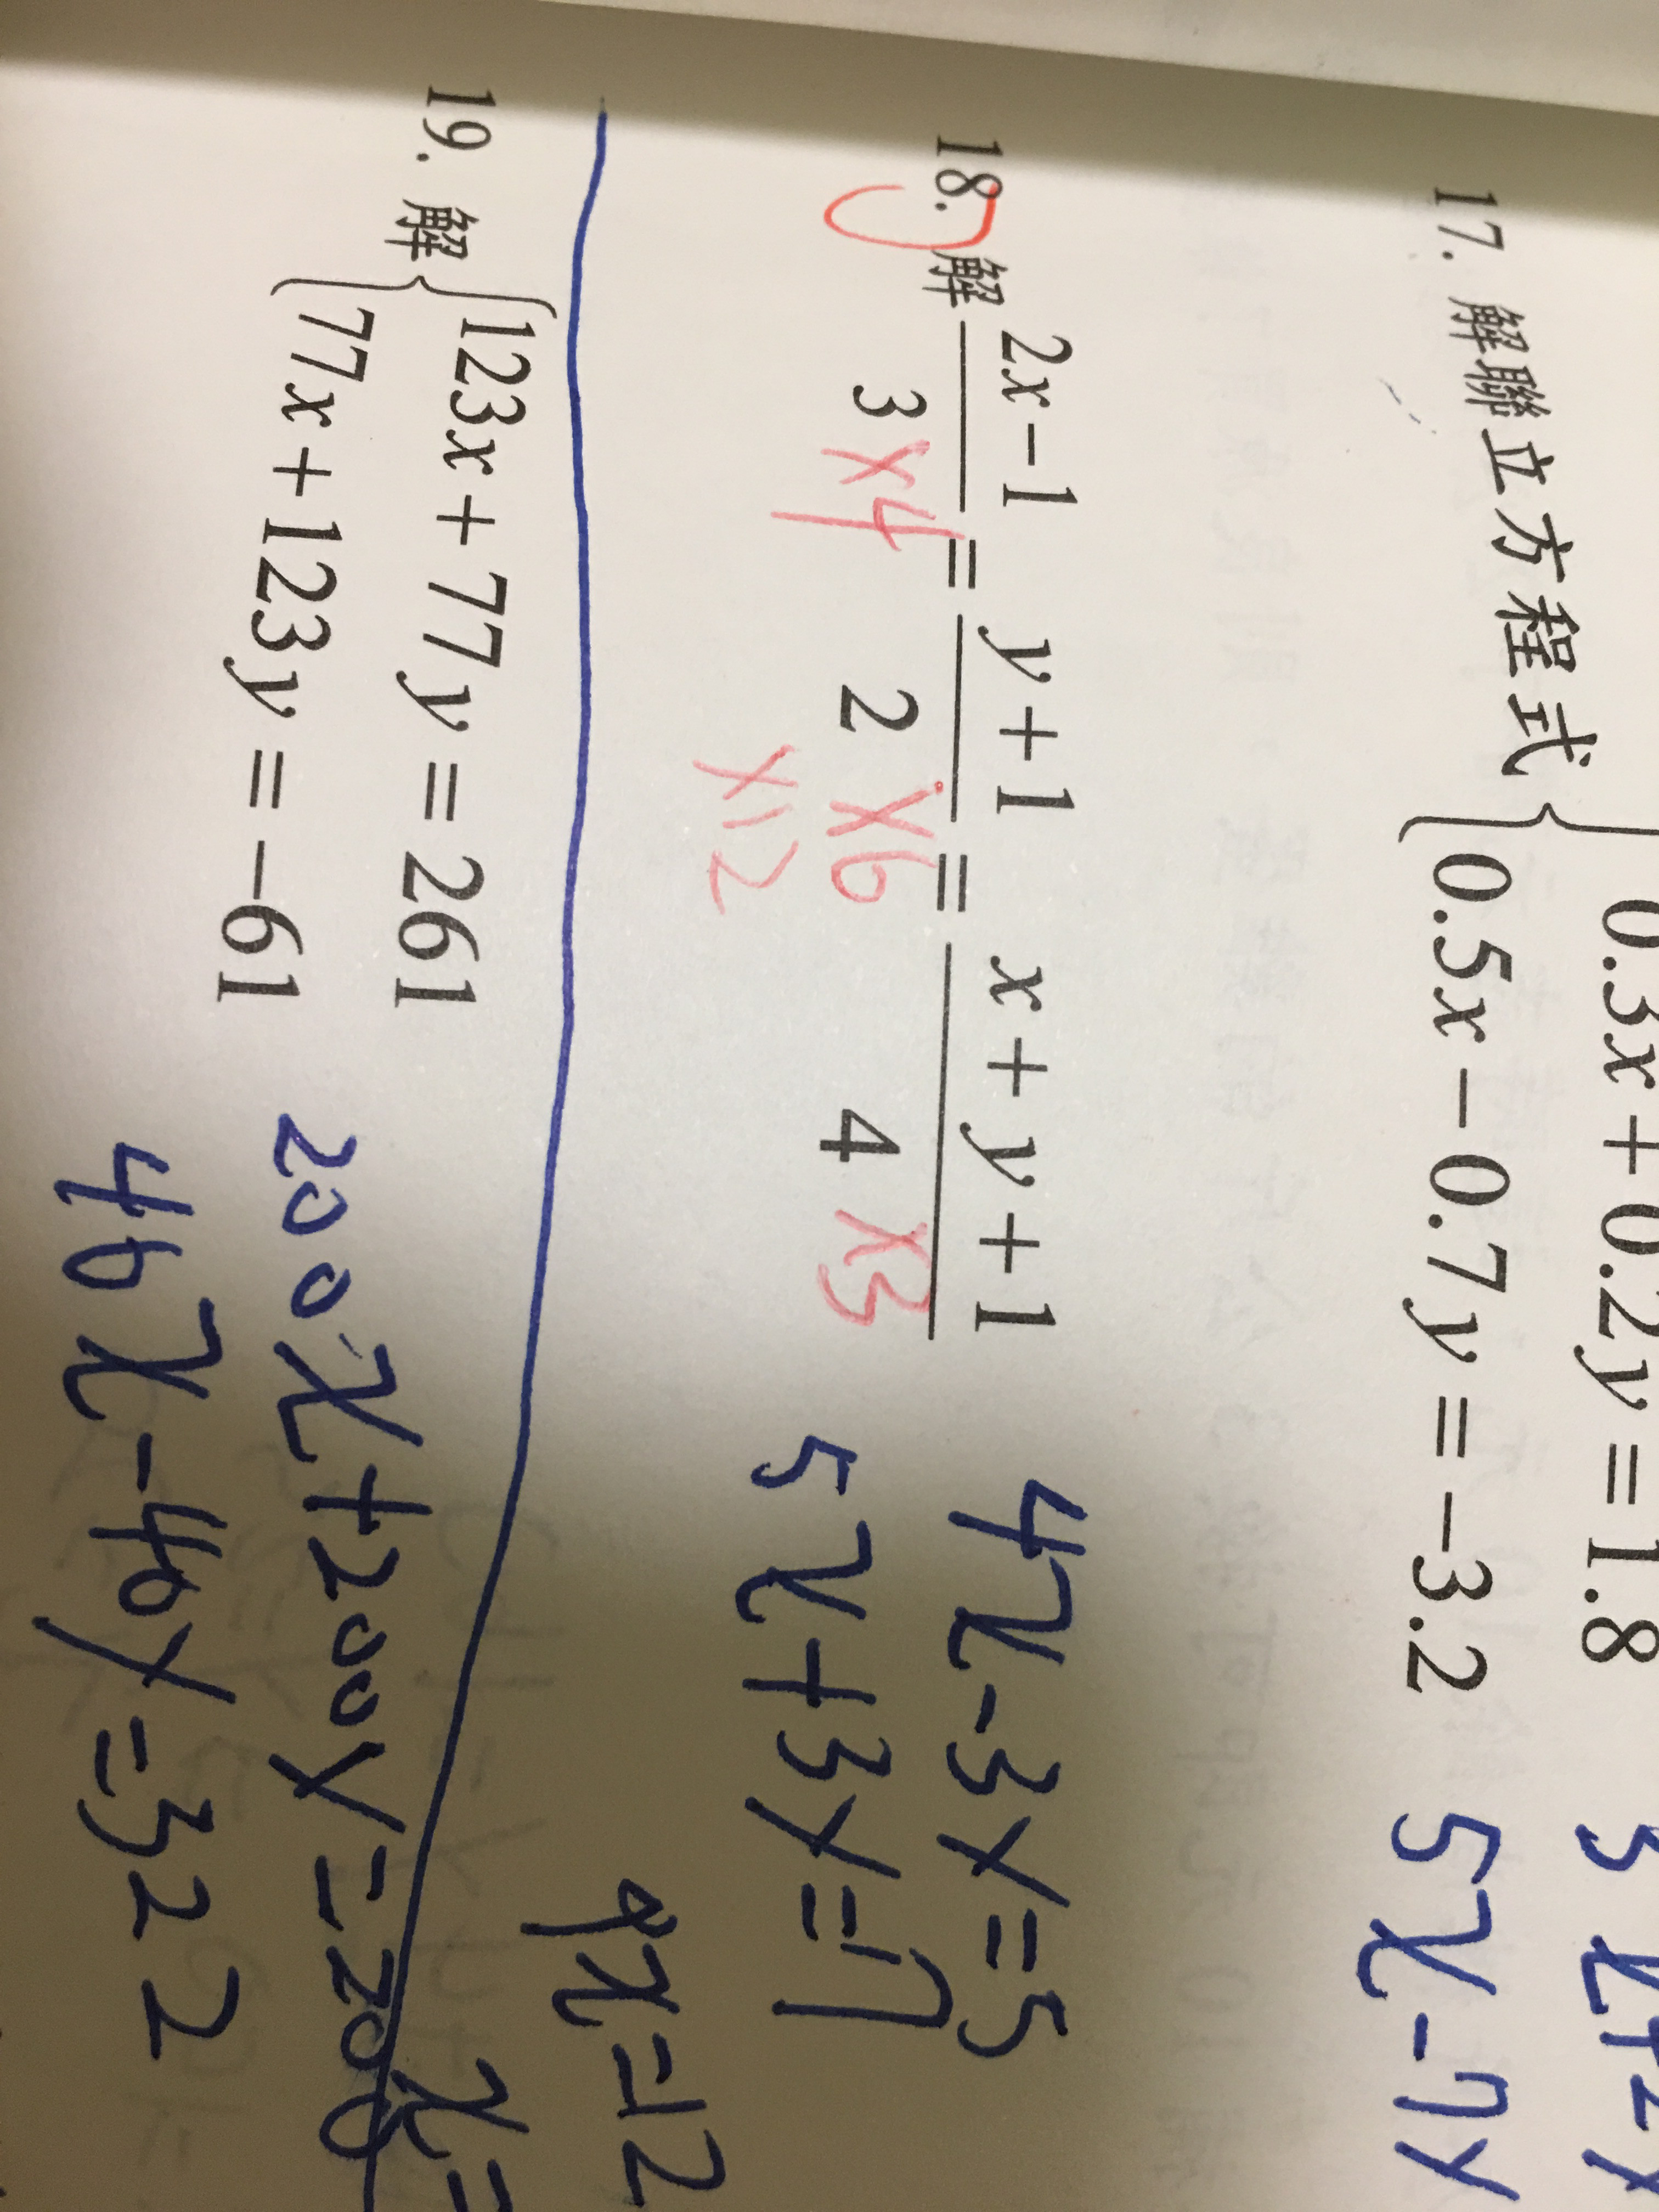 17. 解聯立方程式 { 0.3x + 0.2y = 1.8
0.5x − 0.7y = −3.2
5x − 7y
18. 解 (2x − 1)/3 = (y + 1)/2 = (x + y + 1)/4
×4 ×6 ×3
×12
4x − 3y = 5
5x + 3y = 7
9x = 12
x =
19. 解 { 123x + 77y = 261
77x + 123y = −61
200x + 200y = 200
46x − 46y = 322